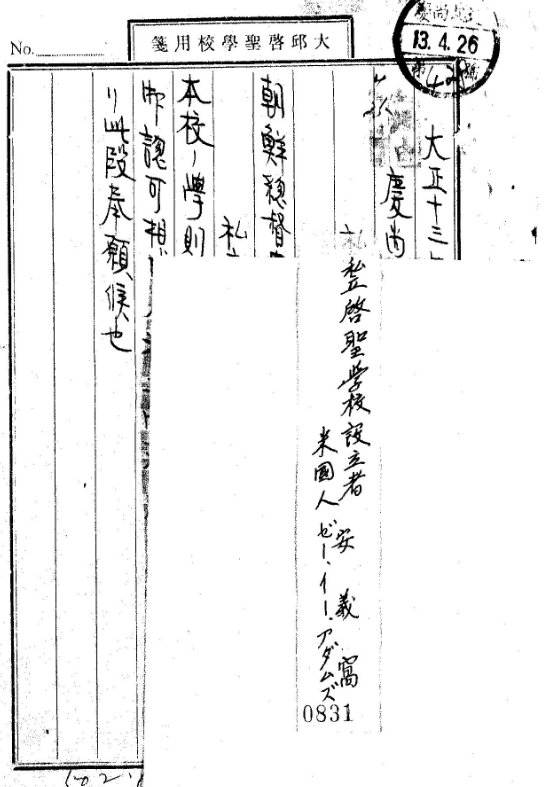 No.
大邱啓聖學校用箋
13.4.26
大正十三
慶尚
私立啓聖学校設立者 安義窩
米國人 ゼー、イー、アダムズ
朝鮮總督
本校ノ學則
御認可相
リ此段奉願候也
0831